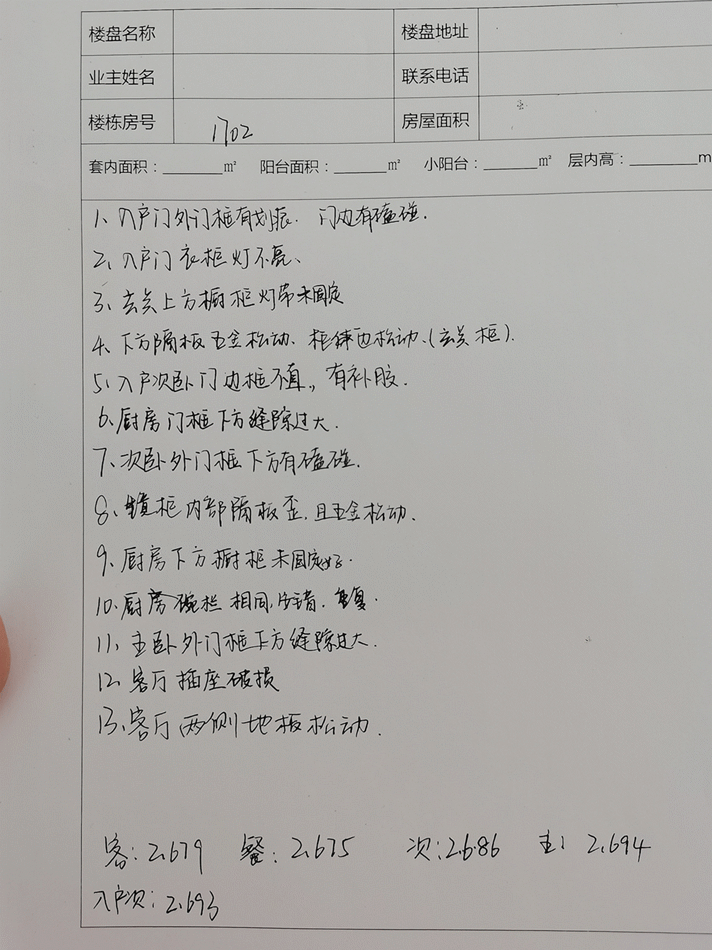 楼盘名称 楼盘地址
业主姓名 联系电话
楼栋房号 1702 房屋面积
套内面积：______㎡ 阳台面积：______㎡ 小阳台：______㎡ 层内高：________m
1、入户门外门框有划痕. 门边有磕碰.
2、入户门衣柜灯不亮、
3、玄关上方橱柜灯带未固定
4、下方隔板五金松动、柜体也松动、(玄关柜).
5、入户次卧门边框不直,, 有补胶.
6、厨房门框下方缝隙过大.
7、次卧外门框下方有磕碰.
8、柜内部隔板歪. 且五金松动.
9、厨房下方橱柜未固定好.
10、厨房碗栏相同, 安错. 重复.
11、主卧外门框下方缝隙过大.
12、客厅插座破损
13、客厅两侧地板松动.
客: 2.679 餐: 2.675 次: 2.686 主: 2.694
入户次: 2.693